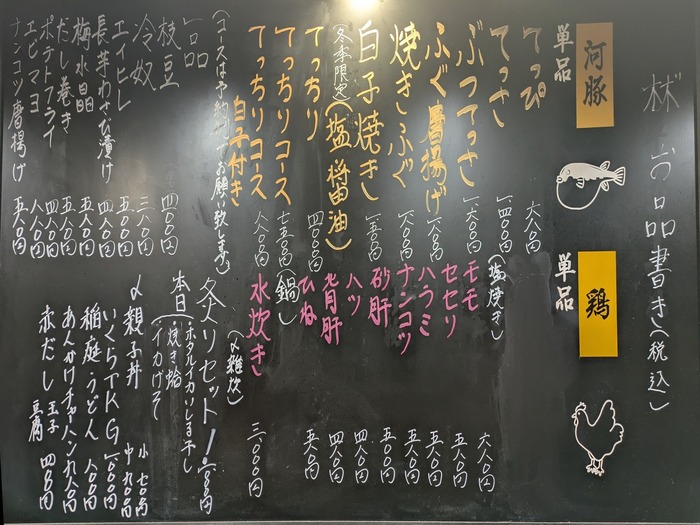 お品書き(税込)
河豚
単品
てっぴ 六八〇円
てっさ 一、四〇〇円
ぶつてっさ 一、六〇〇円
ふぐ唐揚げ 一、八〇〇円
焼きふぐ 一、八〇〇円
白子焼き(塩 醤油) 一、五〇〇円
(冬季限定)
てっちり 四、〇〇〇円
てっちりコース 七、五〇〇円
てっちりコース 八、八〇〇円
白子付き
(コースは予約でお願い致します)
一品
枝豆 四〇〇円
冷奴 三八〇円
エイヒレ 五〇〇円
長芋わさび漬け 四八〇円
梅水晶 五八〇円
だし巻き 五八〇円
ポテトフライ 四八〇円
エビマヨ 八八〇円
ナンコツ唐揚げ 五八〇円
鶏
単品
(塩焼き)
モモ 六八〇円
セセリ 五八〇円
ハラミ 五八〇円
ナンコツ 五八〇円
砂肝 五八〇円
ハツ 四八〇円
背肝 四八〇円
ひね 五八〇円
(鍋)
水炊き 三、〇〇〇円
(〆雑炊)
炙りセット! 一、〇〇〇円
本日
・ホタルイカいしる干し
・焼き蛤
・イカげそ
〆 親子丼 小 七〇〇円
中 九〇〇円
いくらTKG 一、〇〇〇円
稲庭うどん 八〇〇円
あんかけチャーハン 九八〇円
赤だし 玉子 四〇〇円
豆腐